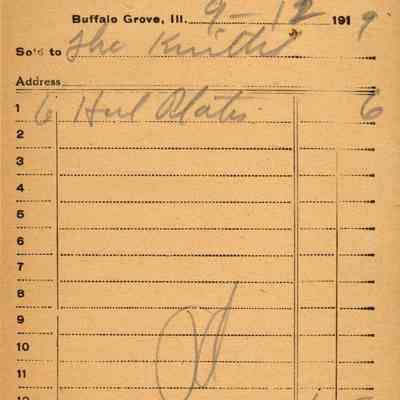 Buffalo Grove, Ill. 9-12 1919
Sold to The
Address
1 6 Heel Plates 6
2
3
4
5
6
7
8
9
10
11
12